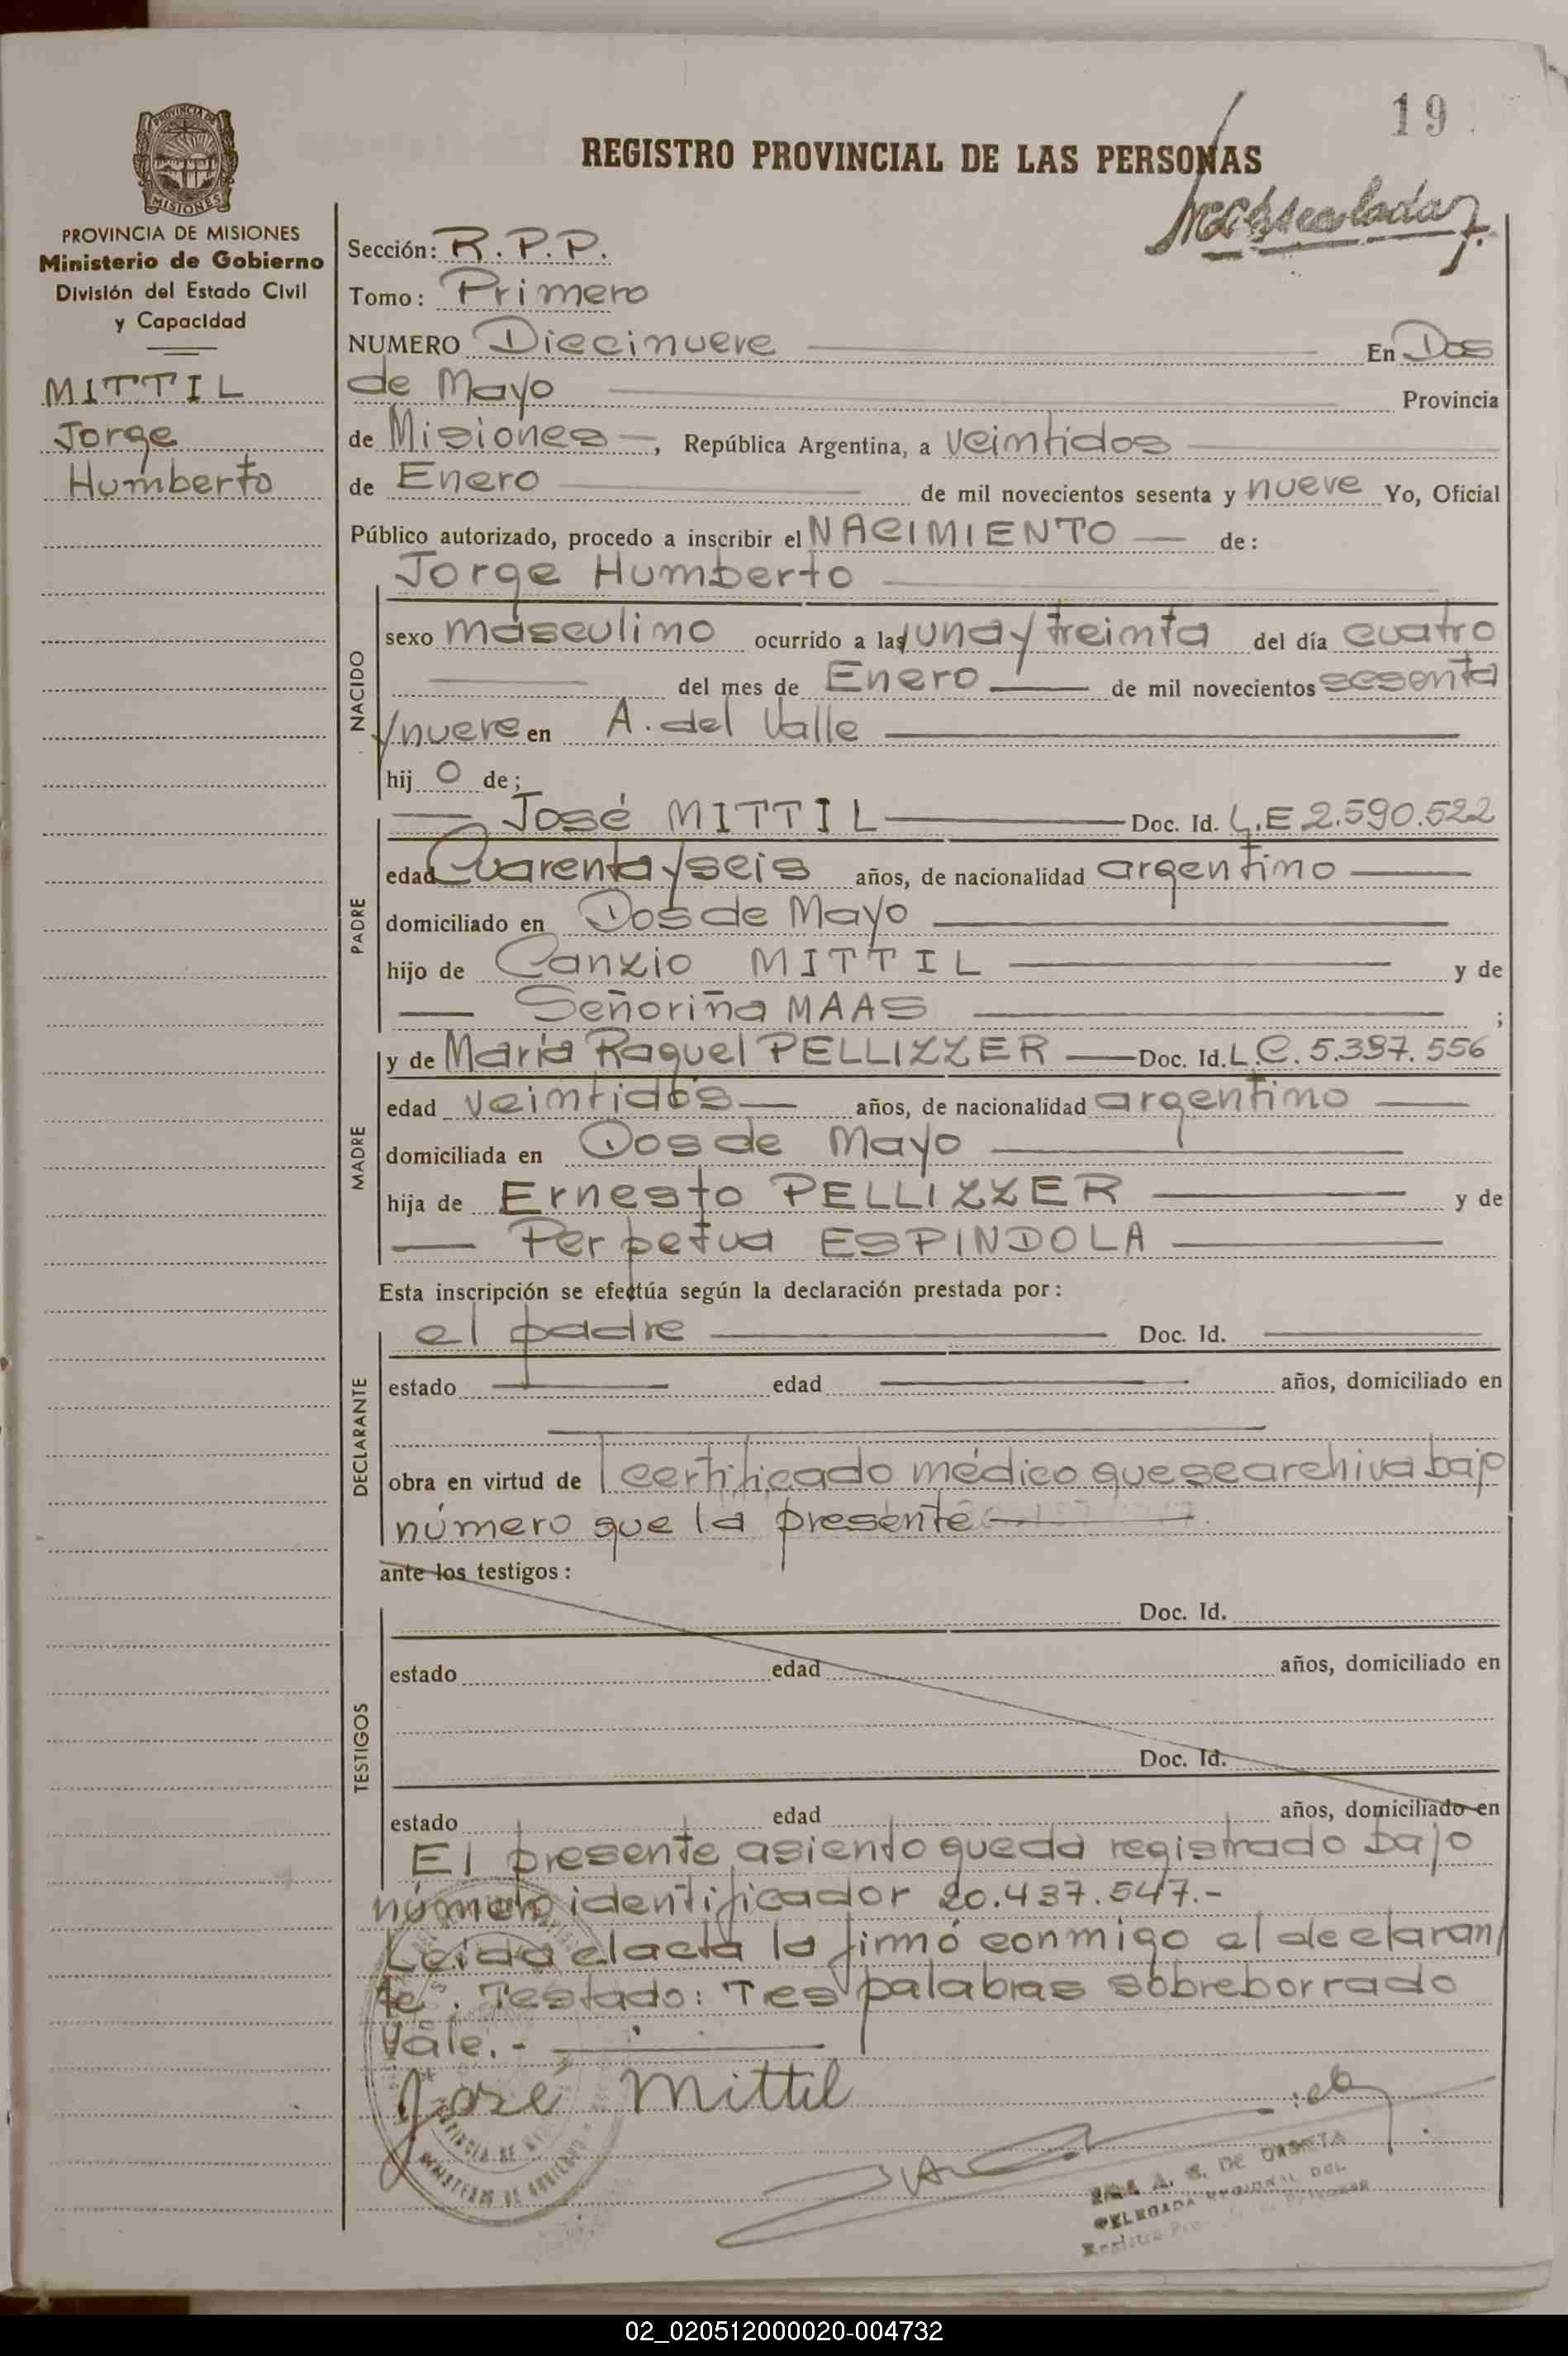 19
REGISTRO PROVINCIAL DE LAS PERSONAS
PROVINCIA DE
MISIONES
PROVINCIA DE MISIONES
Ministerio de Gobierno
División del Estado Civil
y Capacidad
MITTIL
Jorge
Humberto
Sección: R.P.P.
Tomo: Primero
NUMERO Diecinueve En Dos
de Mayo Provincia
de Misiones, República Argentina, a veintidos
de Enero de mil novecientos sesenta y nueve Yo, Oficial
Público autorizado, procedo a inscribir el NACIMIENTO de:
NACIDO
Jorge Humberto
sexo masculino ocurrido a las una y treinta del día cuatro
del mes de Enero de mil novecientos sesenta
y nueve en A. del Valle
hijo de;
PADRE
José MITTIL Doc. Id. L.E 2.590.522
edad Cuarenta y seis años, de nacionalidad argentino
domiciliado en Dos de Mayo
hijo de Canzio MITTIL y de
Señoriña MAAS ;
MADRE
y de María Raquel PELLIZZER Doc. Id. L.C. 5.397.556
edad veintidos años, de nacionalidad argentino
domiciliada en Dos de Mayo
hija de Ernesto PELLIZZER y de
Perpetua ESPINDOLA
Esta inscripción se efectúa según la declaración prestada por:
DECLARANTE
el padre Doc. Id.
estado edad años, domiciliado en
obra en virtud de certificado médico que se archiva bajo
número que la presente
ante los testigos:
TESTIGOS
Doc. Id.
estado edad años, domiciliado en
Doc. Id.
estado edad años, domiciliado en
El presente asiento queda registrado bajo
número identificador 20.437.547.-
Leida el acta la firmó conmigo el declaran
te. Testado: Tres palabras sobreborrado
Vale.-
José Mittil
A. S. DE
DELEGADA REGIONAL DEL
02_020512000020-004732